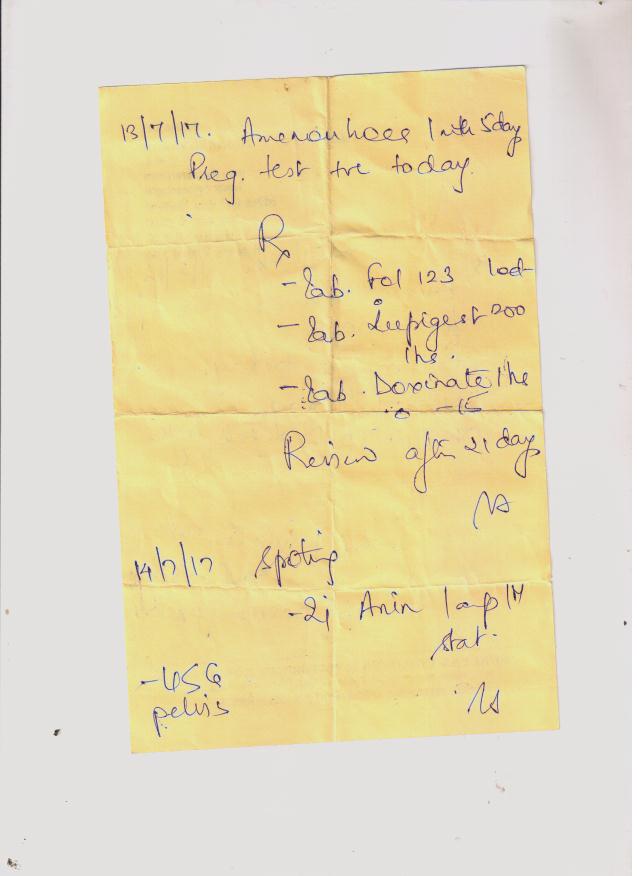 13/7/17. Amenorrhoea 1 mth 5 day
Preg. test +ve today.
Rx
- Tab. Fol 123 1od
- Tab. Susigest 200
1hs.
- Tab. Doxinate 1hs
- 15
Review after 21 days
14/7/17 Spoting
- Inj 1 amp IM
stat.
- USG
pelvis